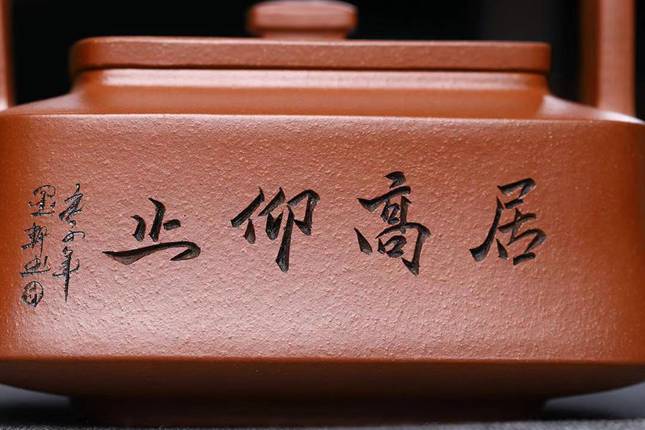 居高仰止
庚子年
墨轩